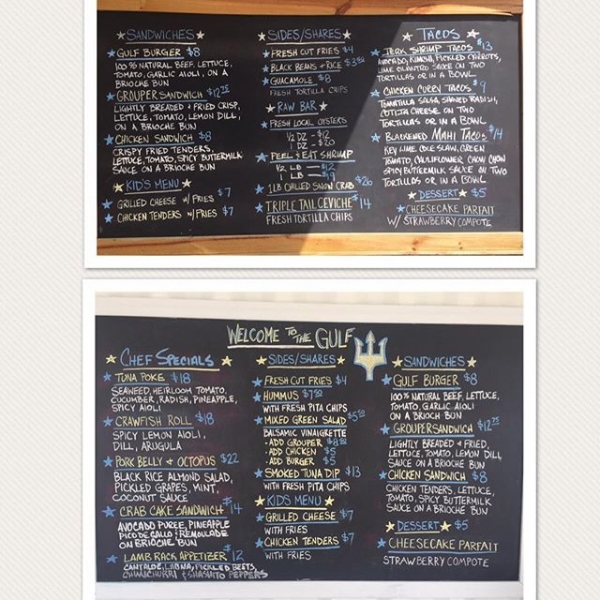 SANDWICHES
GULF BURGER $8
100% NATURAL BEEF, LETTUCE,
TOMATO, GARLIC AIOLI, ON A
BRIOCHE BUN
GROUPER SANDWICH
LIGHTLY BREADED + FRIED CRISP,
LETTUCE, TOMATO, LEMON DILL,
ON A BRIOCHE BUN
CHICKEN SANDWICH $8
CRISPY FRIED TENDERS,
LETTUCE, TOMATO, SPICY BUTTERMILK
SAUCE ON A BRIOCHE BUN
KID'S MENU
GRILLED CHEESE W/ FRIES $7
CHICKEN TENDERS W/ FRIES $7
SIDES/SHARES
FRESH CUT FRIES $4
BLACK BEANS + RICE
GUACAMOLE $8
FRESH TORTILLA CHIPS
RAW BAR
FRESH LOCAL OYSTERS
1/2 DZ - $12
1 DZ - $20
PEEL & EAT SHRIMP
1/2 LB - $12
1 LB - $19
1 LB CHILLED SNOW CRAB $20
TRIPLE TAIL CEVICHE $14
FRESH TORTILLA CHIPS
TACOS
JERK SHRIMP TACOS $13
AVOCADO, KIMCHI, PICKLED CARROTS,
LIME CILANTRO SAUCE ON TWO
TORTILLAS OR IN A BOWL
CHICKEN CURRY TACOS $9
TOMATILLO SALSA, SHAVED RADISH,
COTIJA CHEESE ON TWO
TORTILLAS OR IN A BOWL
BLACKENED MAHI TACOS $14
KEY LIME COLE SLAW, GREEN
TOMATO, CAULIFLOWER CHOW CHOW
SPICY BUTTERMILK SAUCE ON TWO
TORTILLAS OR IN A BOWL
DESSERT $5
CHEESECAKE PARFAIT
W/ STRAWBERRY COMPOTE
WELCOME TO THE GULF
CHEF SPECIALS
TUNA POKE $18
SEAWEED, HEIRLOOM TOMATO,
CUCUMBER, RADISH, PINEAPPLE,
SPICY AIOLI
CRAWFISH ROLL $18
SPICY LEMON AIOLI,
DILL, ARUGULA
PORK BELLY + OCTOPUS $22
BLACK RICE ALMOND SALAD,
PICKLED GRAPES, MINT,
COCONUT SAUCE
CRAB CAKE SANDWICH $14
AVOCADO PUREE, PINEAPPLE
PICO DE GALLO + REMOULADE
ON BRIOCHE BUN
LAMB RACK APPETIZER $12
PICKLED BEETS,
CHIMICHURRI + SHISHITO PEPPERS
SIDES/SHARES
FRESH CUT FRIES $4
HUMMUS
WITH FRESH PITA CHIPS
MIXED GREEN SALAD
BALSAMIC VINAIGRETTE
- ADD GROUPER
- ADD CHICKEN $5
- ADD BURGER $5
SMOKED TUNA DIP $13
WITH FRESH PITA CHIPS
KIDS MENU
GRILLED CHEESE $7
WITH FRIES
CHICKEN TENDERS $7
WITH FRIES
SANDWICHES
GULF BURGER $8
100% NATURAL BEEF, LETTUCE,
TOMATO, GARLIC AIOLI
ON A BRIOCH BUN
GROUPER SANDWICH
LIGHTLY BREADED + FRIED,
LETTUCE, TOMATO, LEMON DILL
SAUCE ON A BRIOCH BUN
CHICKEN SANDWICH $8
CHICKEN TENDERS, LETTUCE,
TOMATO, SPICY BUTTERMILK
SAUCE ON A BRIOCH BUN
DESSERT $5
CHEESECAKE PARFAIT
STRAWBERRY COMPOTE